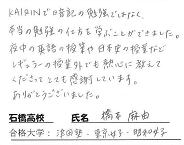 KAIRINで日暗記の勉強ではなく、
本当の勉強の仕方を学ぶことができました。
夜中の英語の授業や日本史の授業など
レギュラーの授業外でも熱心に教えて
くださってとても感謝しています。
ありがとうございました。
石橋高校 氏名 橋本 麻由
合格大学： 津田塾・東京女子・昭和女子